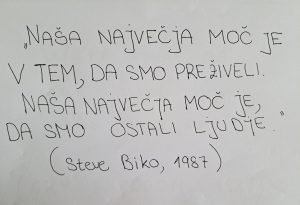 „NAŠA NAJVEČJA MOČ JE
V TEM, DA SMO PREŽIVELI.
NAŠA NAJVEČJA MOČ JE,
DA SMO OSTALI LJUDJE."
(Steve Biko, 1987)